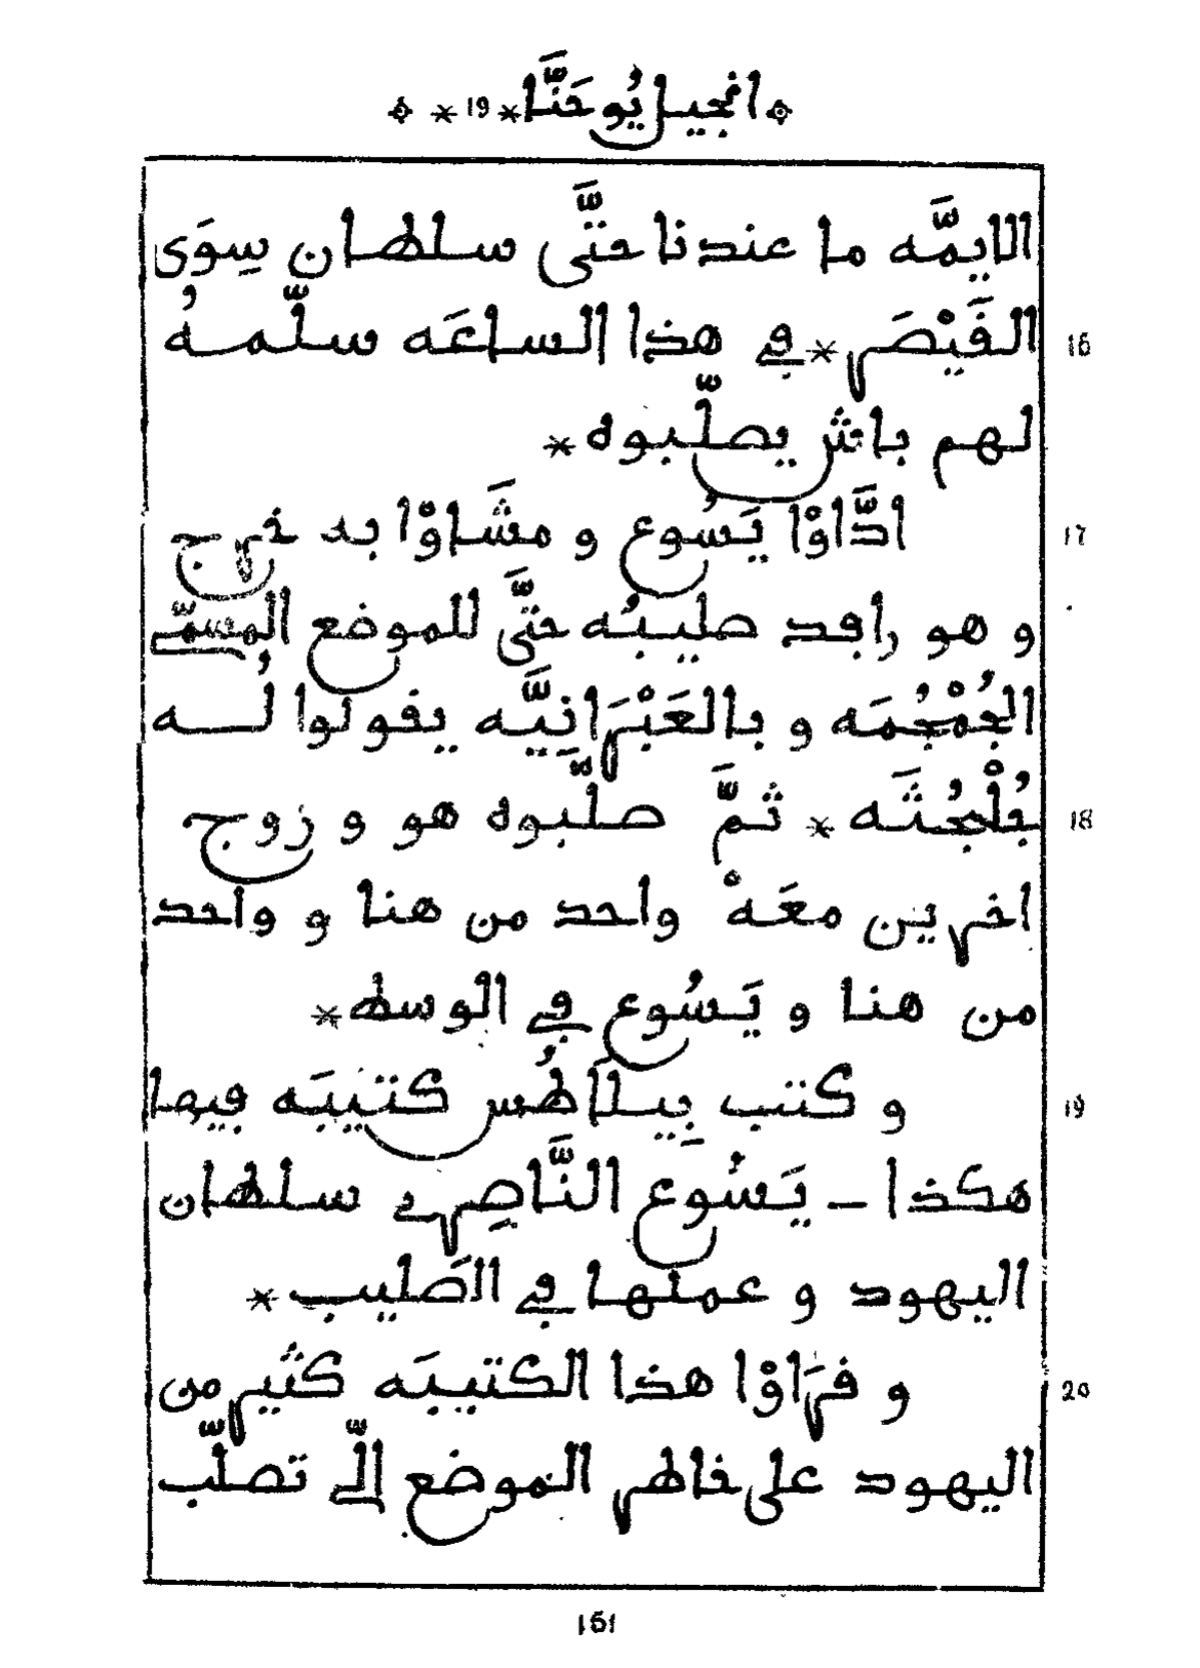 انجيل يُوحَنَّا * 19 *
الايمَّه ما عندنا حتَّى سلطان سِوَى
16 القَيْصَر * في هذا الساعَه سلّمهُ
لهم باش يصلّبوه *
17 ادَّاوْا يَسُوع و مشَاوْا به خرج
و هو رافد صليبُه حتَّى للموضع المسمّى
الجُمْجُمَه و بالعَبْرَانِيَّه يقولوا لُه
18 جُلْجُثَه * ثمَّ صلّبوه هو و زوج
اخرين معَهْ واحد من هنا و واحد
من هنا و يَسُوع في الوسط *
19 و كتب بِيلَاطُس كتيبَه فيها
هكذا ـ يَسُوع النَّاصِري سلطان
اليهود و عملها في الصَليب *
20 و قرَاوْا هذا الكتيبَه كثير من
اليهود على خاطر الموضع إلّي تصلّب
161